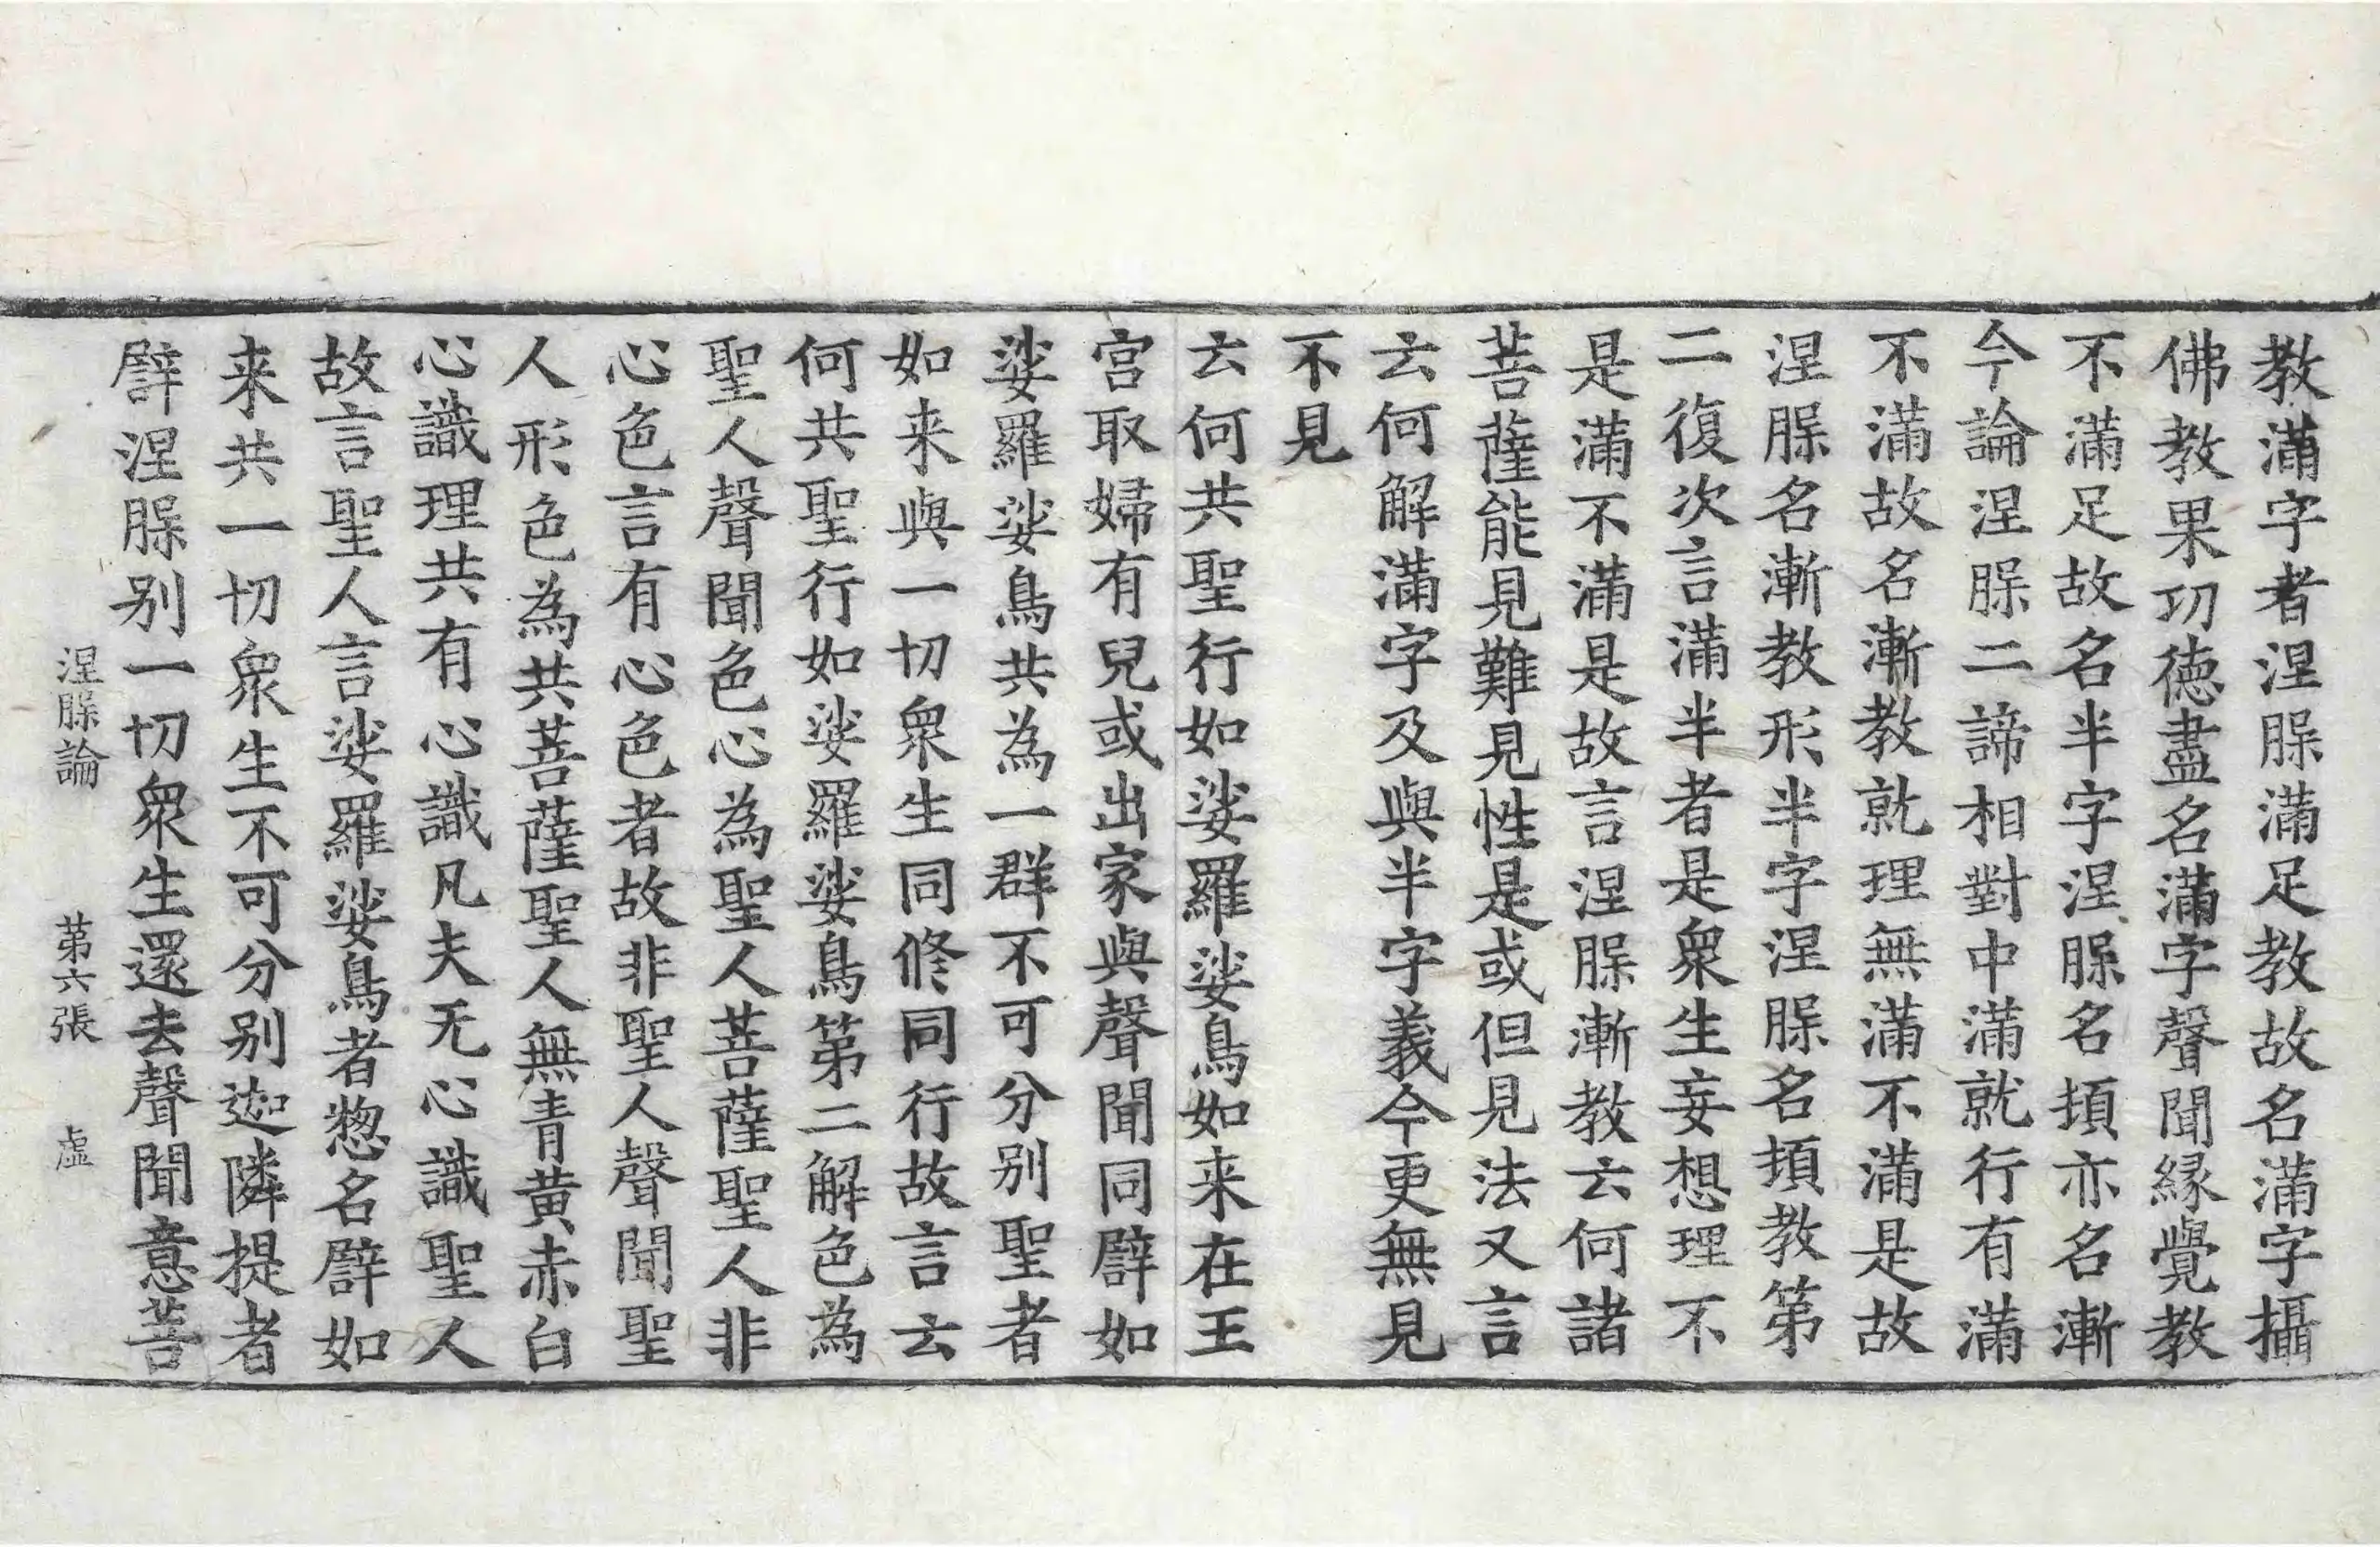 教滿字者涅槃滿足教故名滿字攝
佛教果功德盡名滿字聲聞緣覺教
不滿足故名半字涅槃名頓亦名漸
今論涅槃二諦相對中滿就行有滿
不滿故名漸教就理無滿不滿是故
涅槃名漸教形半字涅槃名頓教第
二復次言滿半者是衆生妄想理不
是滿不滿是故言涅槃漸教云何諸
菩薩能見難見性是或但見法又言
云何解滿字及與半字義今更無見
不見
云何共聖行如娑羅娑鳥如来在王
宮取婦有兒或出家與聲聞同辟如
娑羅娑鳥共為一群不可分别聖者
如来與一切衆生同修同行故言云
何共聖行如娑羅娑鳥第二解色為
聖人聲聞色心為聖人菩薩聖人非
心色言有心色者故非聖人聲聞聖
人形色為共菩薩聖人無青黄赤白
心識理共有心識凡夫无心識聖人
故言聖人言娑羅娑鳥者惣名辟如
来共一切衆生不可分别迦隣提者
辟涅槃别一切衆生還去聲聞意菩
涅槃論 第六張 虛